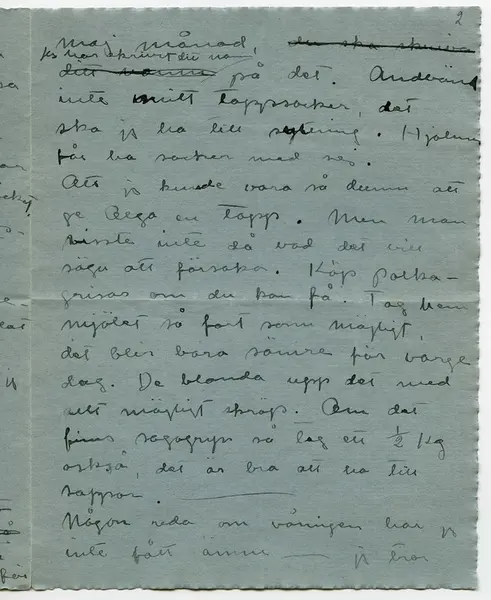 2
maj månad, du ska skriva
jag har skrivit ditt namn på det. Använd
inte mitt toppsocker, det
ska jag ha till syltning. Hjalmar
får ha socker med sig.
Att jag kunde vara så dum att
ge Aega en topp. Men man
visste inte då vad det vill
säga att försaka. Köp polka-
grisar om du kan få. Tag hem
mjölet så fort som möjligt,
det blir bara sämre för varje
dag. De blanda upp det med
allt möjligt skräp. Om det
finns sagogryn så tag ett ½ kg
också, det är bra att ha till
soppor.
Någon reda om våningen har jag
inte fått ännu — jag tror